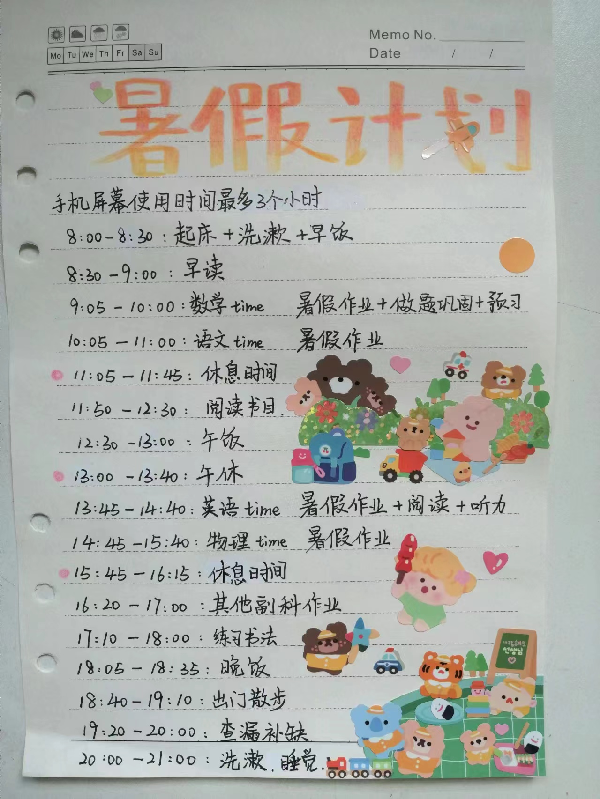 Memo No.
Mo Tu We Th Fr Sa Su
Date / /
暑假计划
手机屏幕使用时间最多3个小时
8:00-8:30:起床+洗漱+早饭
8:30-9:00:早读
9:05-10:00:数学time 暑假作业+做题巩固+预习
10:05-11:00:语文time 暑假作业
11:05-11:45:休息时间
11:50-12:30:阅读书目
12:30-13:00:午饭
13:00-13:40:午休
13:45-14:40:英语time 暑假作业+阅读+听力
14:45-15:40:物理time 暑假作业
15:45-16:15:休息时间
16:20-17:00:其他副科作业
17:10-18:00:练习书法
18:05-18:35:晚饭
18:40-19:10:出门散步
19:20-20:00:查漏补缺
20:00-21:00:洗漱.睡觉.